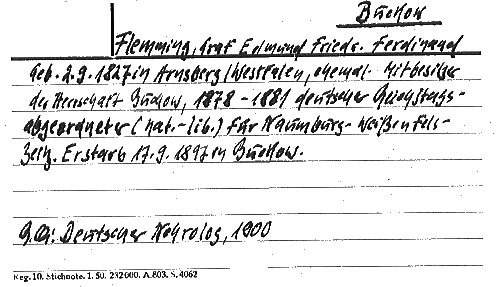 Buckow
Flemming, Graf Edmund Friedr. Ferdinand
geb. 2.9.1827 in Arnsberg/Westfalen, ehemal. Mitbesitzer
der Herrschaft Buckow, 1878-1881 deutscher Reichstags-
abgeordneter (nat.-lib.) für Naumburg-Weißenfels-
Zeitz. Er starb 17.9.1897 in Buckow.
Qu: Deutscher Nekrolog, 1900
Reg. 10. Stichnote. 1. 50. 232000. A.803. S.4062